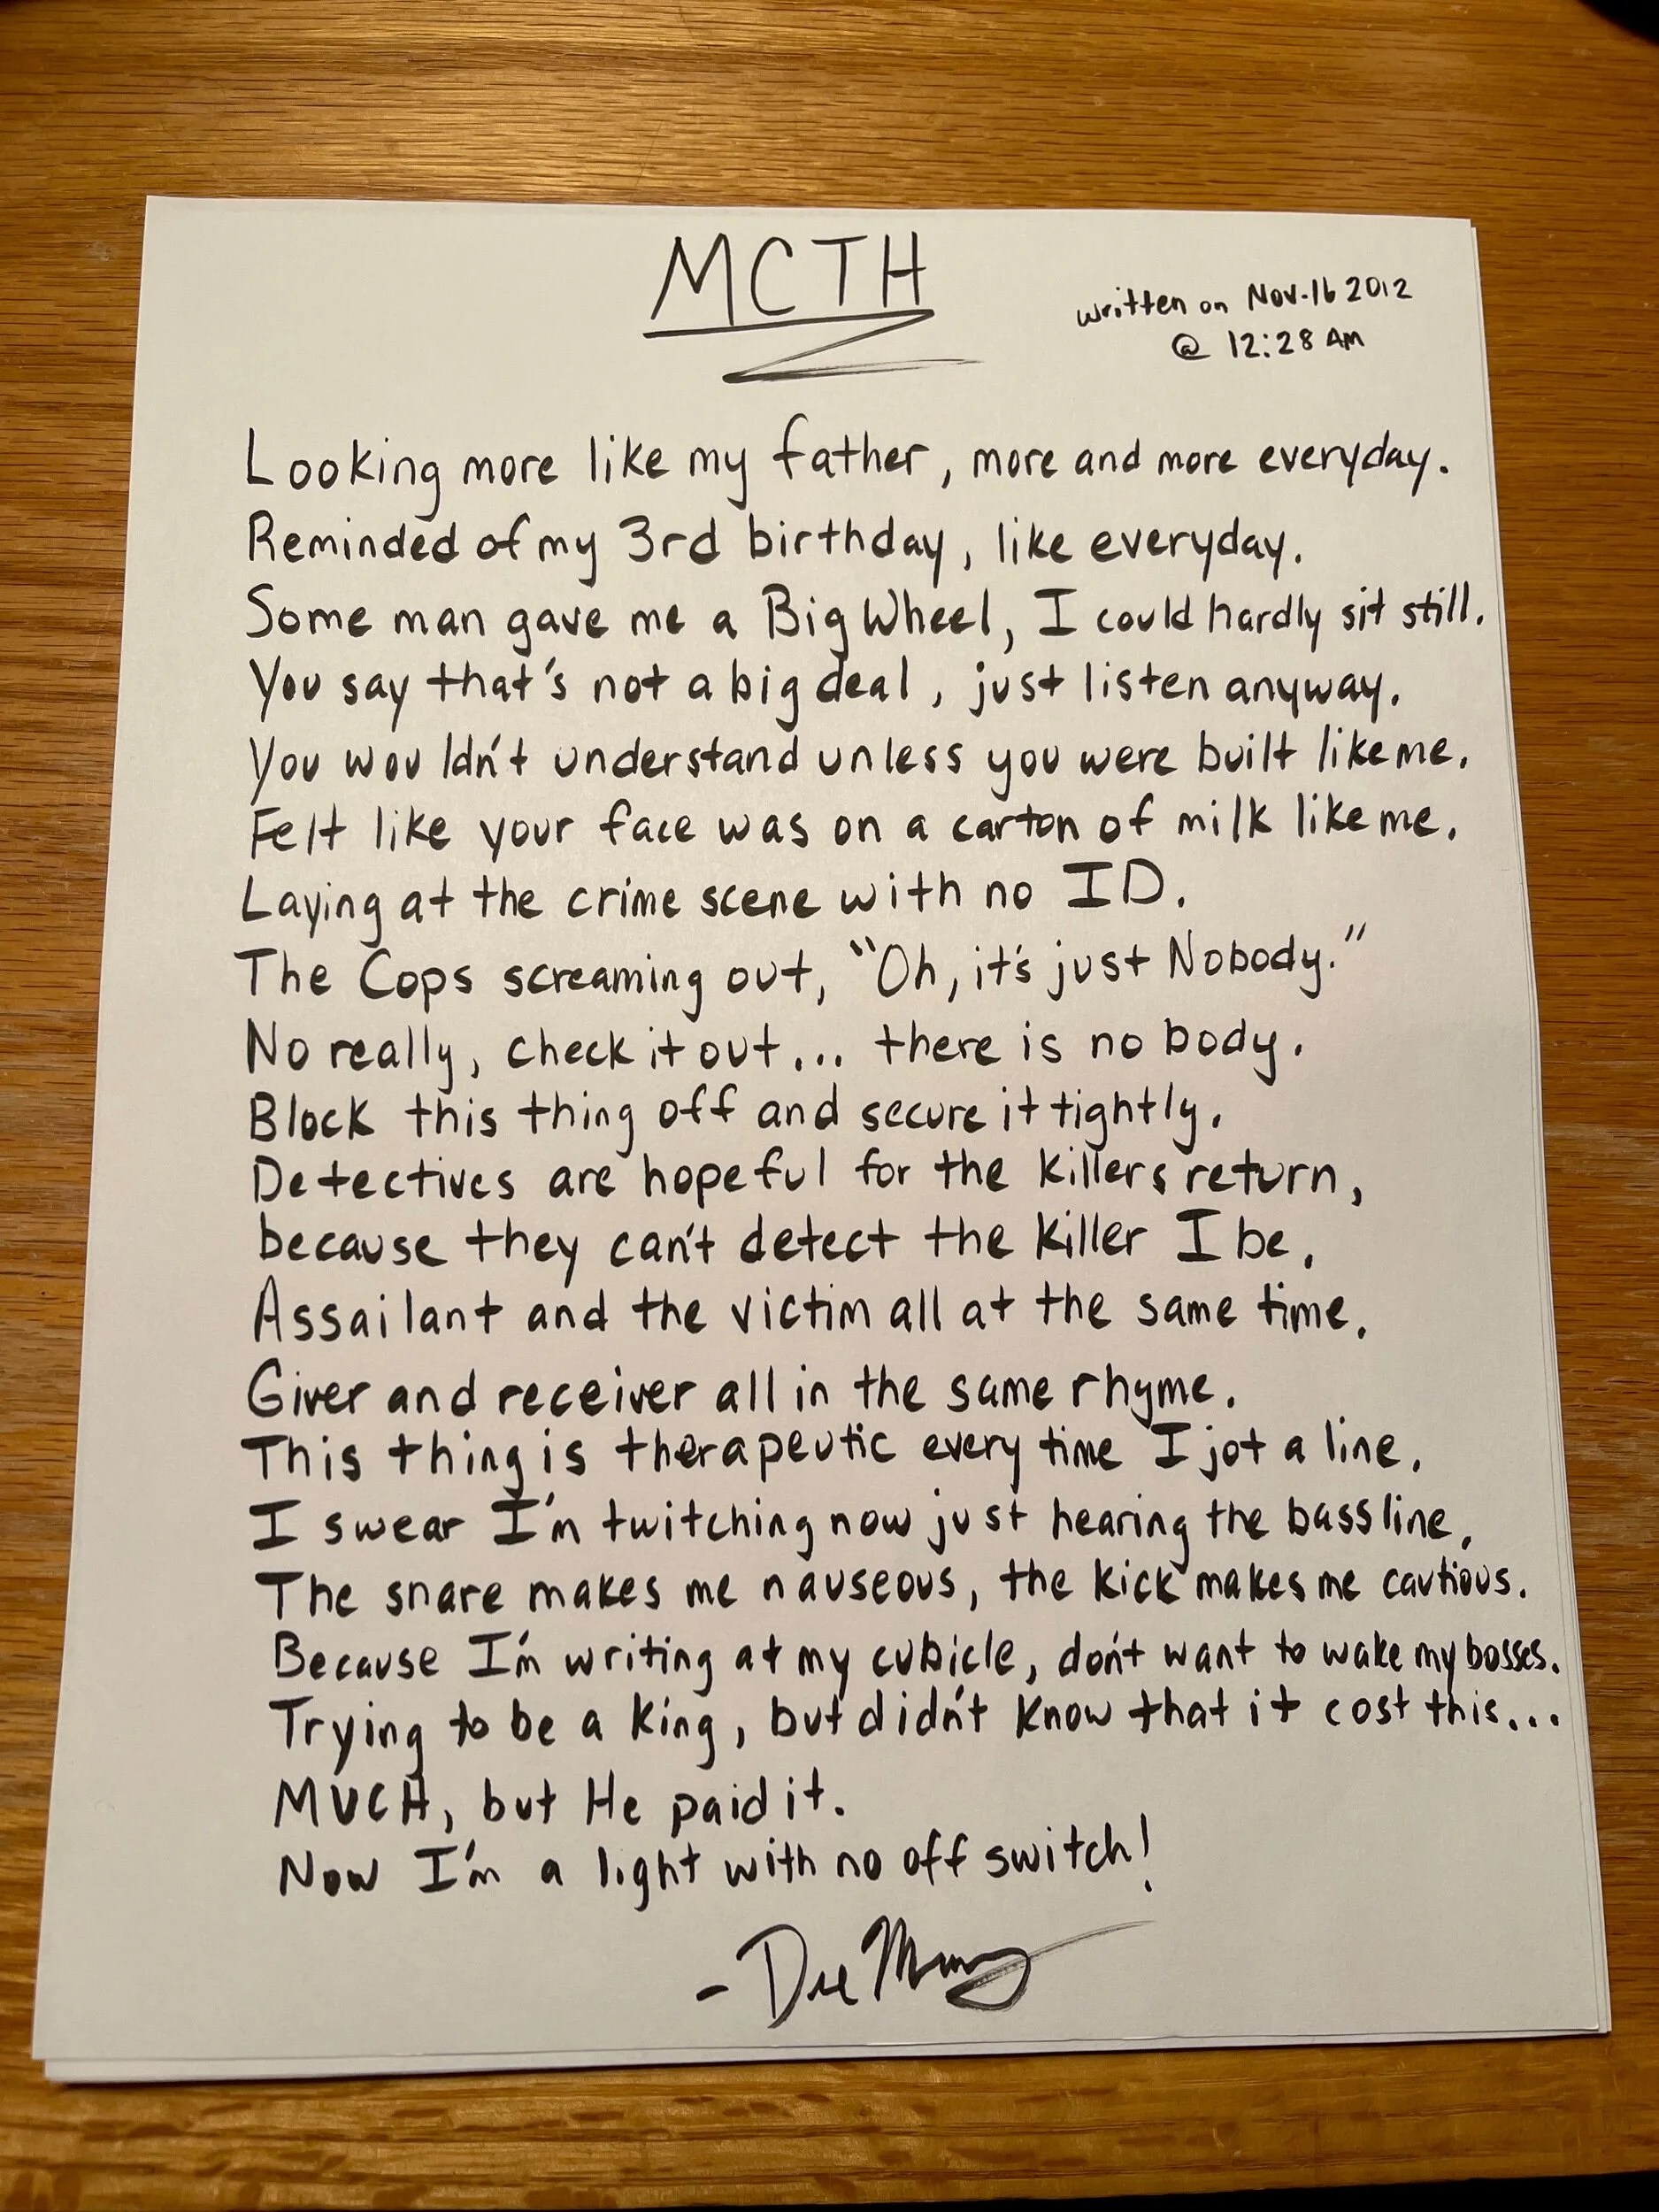 MCTH
written on Nov-16 2012
@ 12:28 AM
Looking more like my father, more and more everyday.
Reminded of my 3rd birthday, like everyday.
Some man gave me a Big Wheel, I could hardly sit still.
You say that's not a big deal, just listen anyway.
You wouldn't understand unless you were built like me.
Felt like your face was on a carton of milk like me.
Laying at the crime scene with no ID.
The Cops screaming out, "Oh, it's just Nobody."
No really, check it out... there is no body.
Block this thing off and secure it tightly.
Detectives are hopeful for the killers return,
because they can't detect the killer I be.
Assailant and the victim all at the same time.
Giver and receiver all in the same rhyme.
This thing is therapeutic every time I jot a line.
I swear I'm twitching now just hearing the bassline.
The snare makes me nauseous, the kick makes me cautious.
Because I'm writing at my cubicle, don't want to wake my bosses.
Trying to be a king, but didn't know that it cost this...
MUCH, but He paid it.
Now I'm a light with no off switch!
- Dre Murray